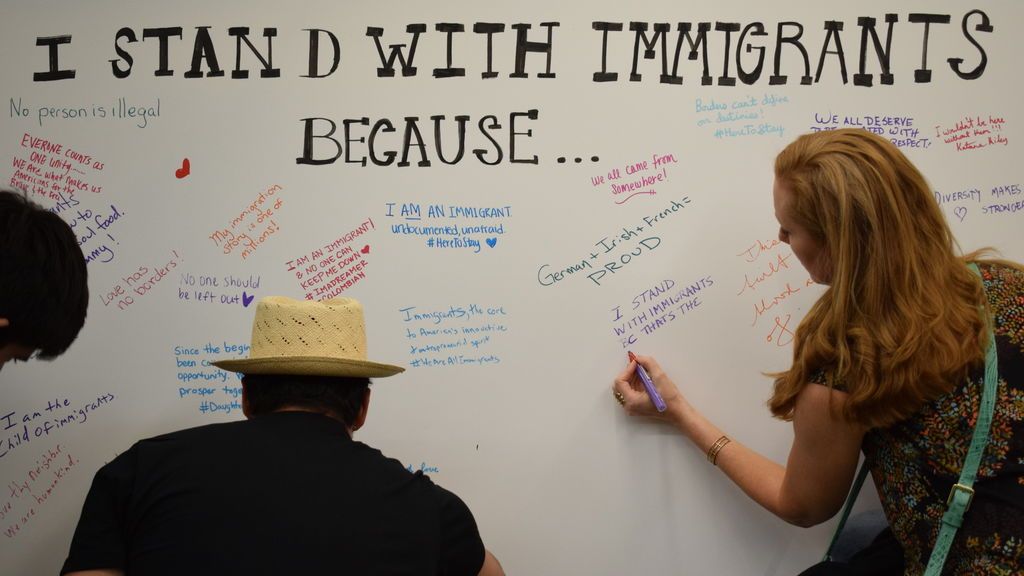 I STAND WITH IMMIGRANTS
BECAUSE...
No person is illegal
EVERYONE COUNTS as
ONE UNITY....
WE ARE what MAKES us
Americans for the
soul food.
Love has
no borders!
My immigration
story is one of
millions!
No one should
be left out
I AM AN IMMIGRANT!
& NO ONE CAN
KEEP ME DOWN
#IMADREAMER
COLOMBIAN
I AM AN IMMIGRANT
undocumented, unafraid.
#HereToStay
Immigrants, the core
to America's innovative
spirit
#WeAreAllImmigrants
Since the
opportunity.
prosper
I am the
Child of immigrants
thy Neighbor
We are humankind.
love
we all came from
somewhere!
German + Irish + French =
PROUD
I STAND
WITH IMMIGRANTS
BC THATS THE
Borders can't define
our destinies!
#HereToStay
WE ALL DESERVE
WITH
RESPECT.
I wouldn't be here
without them!!!
DIVERSITY MAKES
STRONGER
&